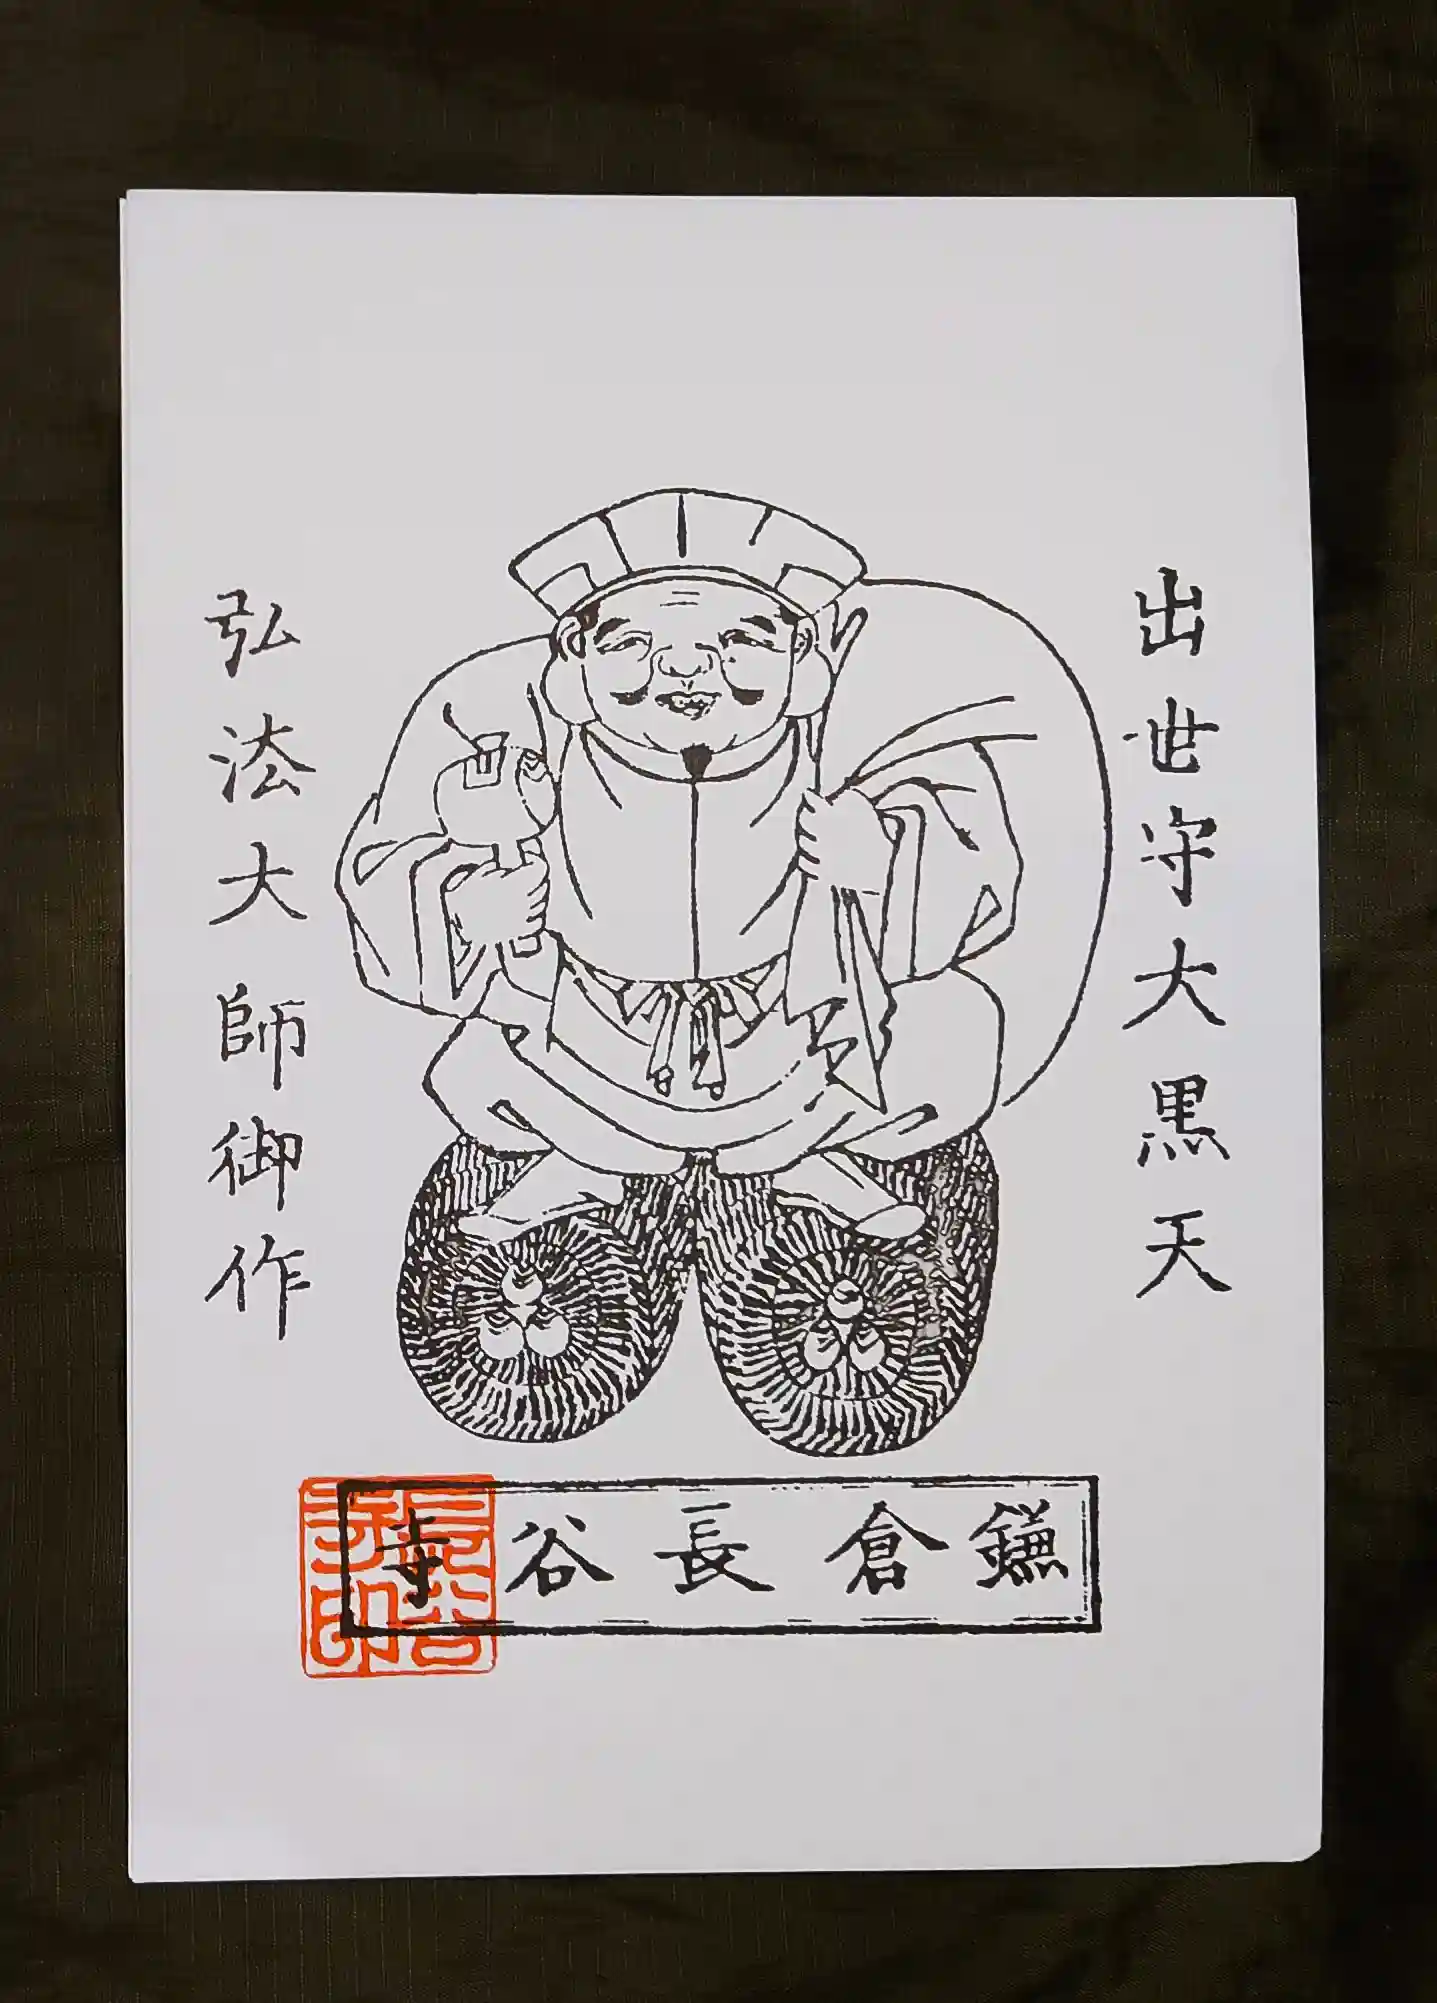 出世守大黒天
弘法大師御作
鎌倉長谷寺
長谷寺印